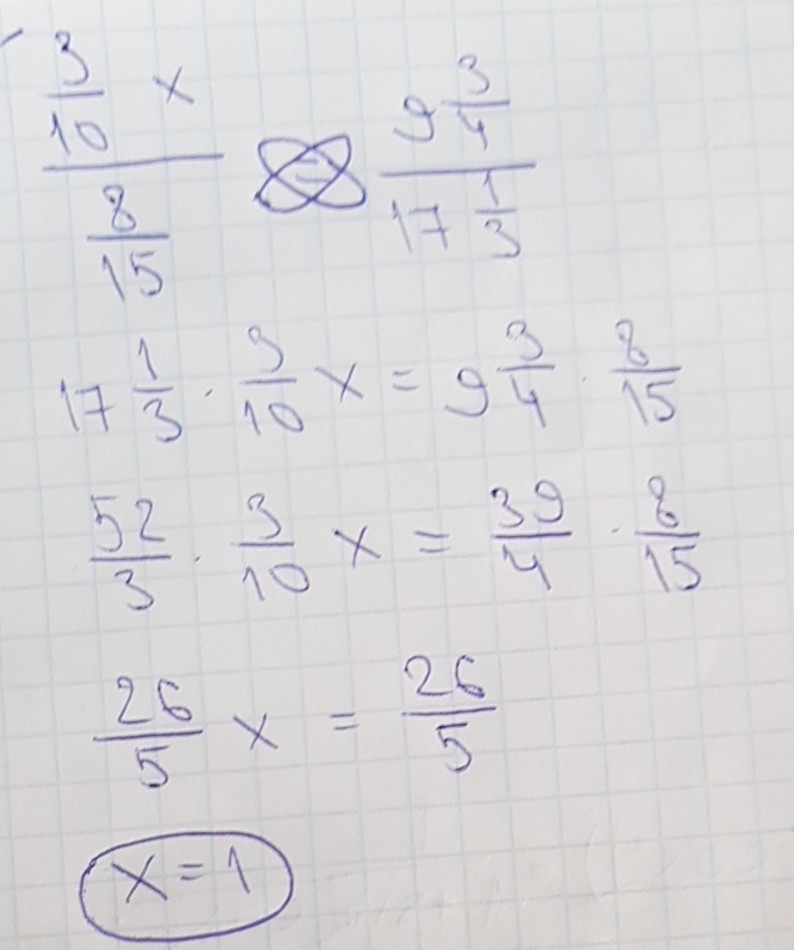 (3/10 x)/(8/15) = (9 3/4)/(17 1/3)
17 1/3 · 3/10 x = 9 3/4 · 8/15
52/3 · 3/10 x = 39/4 · 8/15
26/5 x = 26/5
x = 1